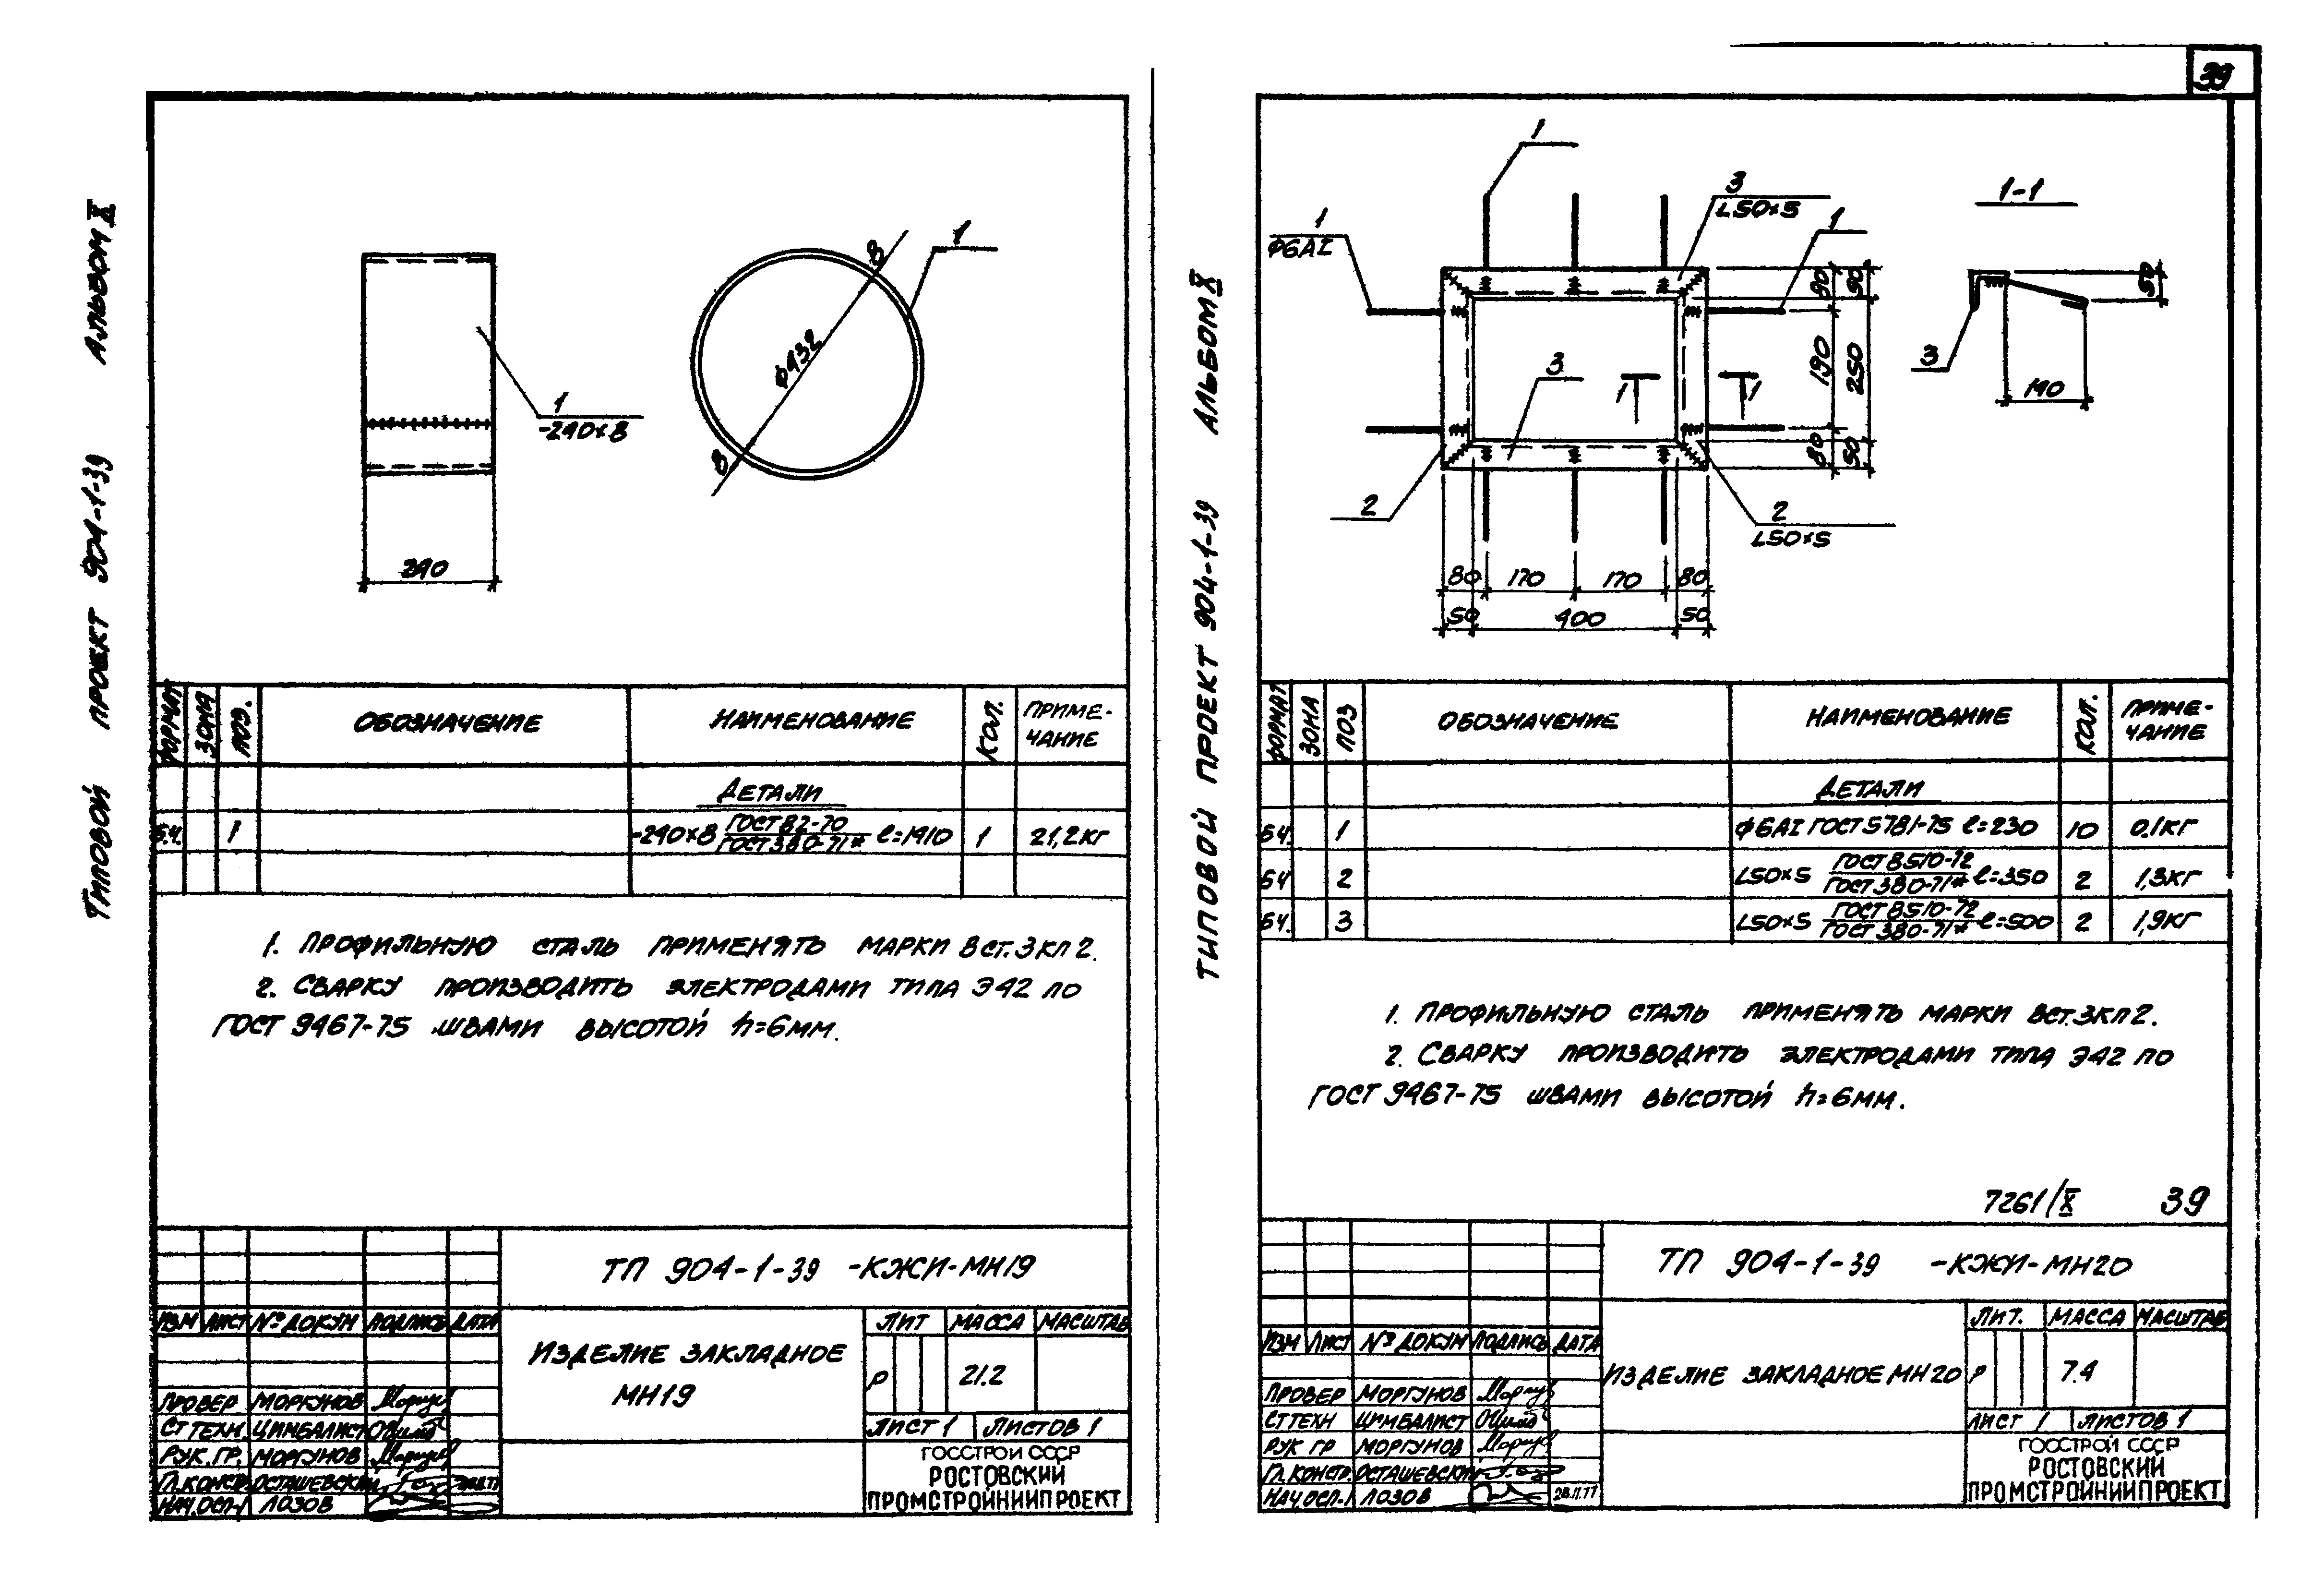 39
Типовой проект 904-1-39 Альбом X
1
-240×8
240
8
Ф432
8
1
ФОРМАТ ЗОНА ПОЗ. ОБОЗНАЧЕНИЕ НАИМЕНОВАНИЕ КОЛ. ПРИМЕ-
ЧАНИЕ
ДЕТАЛИ
Б.Ч. 1 -240×8 ГОСТ 82-70 / ГОСТ 380-71* ℓ=1410 1 21,2 кг
1. ПРОФИЛЬНУЮ СТАЛЬ ПРИМЕНЯТЬ МАРКИ В СТ.3 КП 2.
2. СВАРКУ ПРОИЗВОДИТЬ ЭЛЕКТРОДАМИ ТИПА Э42 ПО
ГОСТ 9467-75 ШВАМИ ВЫСОТОЙ h=6мм.
ТП 904-1-39 -КЖИ-МН19
ИЗМ ЛИСТ № ДОКУМ ПОДПИСЬ ДАТА
ИЗДЕЛИЕ ЗАКЛАДНОЕ
МН19
ЛИТ МАССА МАСШТАБ
Р 21.2
ЛИСТ 1 ЛИСТОВ 1
ПРОВЕР МОРГУНОВ
СТ ТЕХН. ЦИМБАЛИСТ
РУК. ГР. МОРГУНОВ
ГЛ. КОНСТР. ОСТАШЕВСКИЙ
НАЧ. ОСП-1 ЛОЗОВ
ГОССТРОЙ СССР
РОСТОВСКИЙ
ПРОМСТРОЙНИИПРОЕКТ
ТИПОВОЙ ПРОЕКТ 904-1-39 АЛЬБОМ X
1
1
Ф6АI
3
L50×5
1
1-1
3
1 1
2
2
L50×5
80 190 80
50 250 50
80 170 170 80
50 400 50
50
3
140
ФОРМАТ ЗОНА ПОЗ ОБОЗНАЧЕНИЕ НАИМЕНОВАНИЕ КОЛ. ПРИМЕ-
ЧАНИЕ
ДЕТАЛИ
БЧ. 1 Ф6АI ГОСТ 5781-75 ℓ=230 10 0,1кг
БЧ 2 L50×5 ГОСТ 8510-72 / ГОСТ 380-71* ℓ=350 2 1,3кг
БЧ. 3 L50×5 ГОСТ 8510-72 / ГОСТ 380-71* ℓ=500 2 1,9кг
1. ПРОФИЛЬНУЮ СТАЛЬ ПРИМЕНЯТЬ МАРКИ ВСТ.3КП2.
2. СВАРКУ ПРОИЗВОДИТЬ ЭЛЕКТРОДАМИ ТИПА Э42 ПО
ГОСТ 9467-75 ШВАМИ ВЫСОТОЙ h=6мм.
7261/X 39
ТП 904-1-39 -КЖИ-МН20
ИЗМ ЛИСТ № ДОКУМ ПОДПИСЬ ДАТА
ИЗДЕЛИЕ ЗАКЛАДНОЕ МН20
ЛИТ. МАССА МАСШТАБ
Р 7.4
ЛИСТ 1 ЛИСТОВ 1
ПРОВЕР МОРГУНОВ
СТ ТЕХН ЦИМБАЛИСТ
РУК ГР МОРГУНОВ
ГЛ. КОНСТР. ОСТАШЕВСКИЙ
НАЧ. ОСП-1 ЛОЗОВ 28.11.77
ГОССТРОЙ СССР
РОСТОВСКИЙ
ПРОМСТРОЙНИИПРОЕКТ